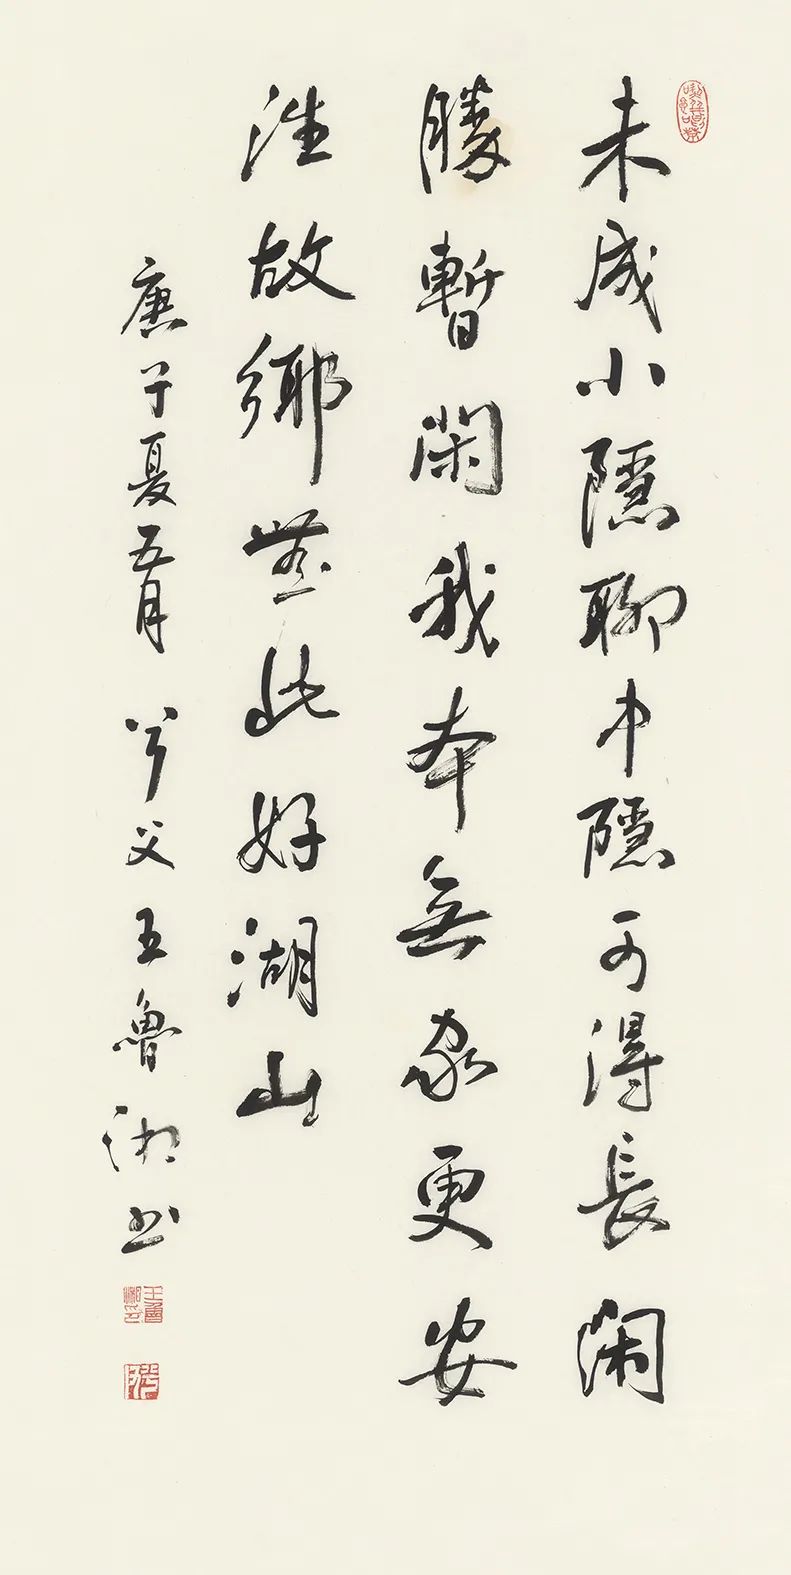 未成小隱聊中隱可得長閑
勝暫閑我本無家更安
往故鄉無此好湖山
庚子夏五月 兮父王魯湘书
王魯湘印